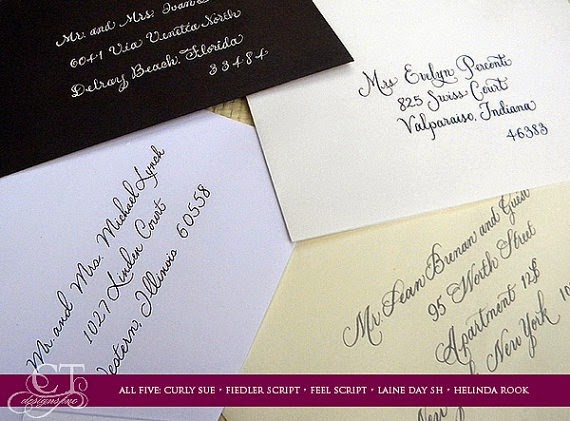 Mr. and Mrs. Ivan
6041 Via Venetta North
Delray Beach, Florida
33484
Mrs Evelyn Parenti
825 Swiss Court
Valparaiso, Indiana
46383
Mr and Mrs. Michael Lynch
1027 Linden Court
Western, Illinois 60558
Mr. Sean Brenan and Guest
95 Worth Street
Apartment 12S
New York
CT
designs inc
ALL FIVE: CURLY SUE • FIEDLER SCRIPT • FEEL SCRIPT • LAINE DAY SH • HELINDA ROOK